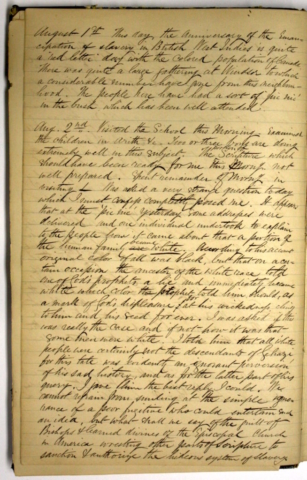 August 1st This day, the Anniversary of the Eman-
cipation of slavery in British West Indies is quite
a red letter day with the Colored population of Canada
There was quite a large gathering at Windsor to which
a considerable number have gone from this neighbor-
hood. The people here have had a sort of pic nic
in the bush which has been well attended.
Aug. 2nd. Visited the School this Morning Examined
the children in Arith &c. Two or three boys are doing
extremely well in this Subject. The Scripture which
should have been ready for me this Morng. not
well prepared. Spent remainder of Morng in
visiting. Was asked a very strange question today
which I must confess completely posed me. It appears
that at the pic nic yesterday some addresses were
delivered and one individual undertook to explain
to the people how it came about that a portion of
the human family was White. According to his view
original color of all was black, but that on a cer-
tain occasion the ancestor of the White race told
one of God's prophets a lie and immediately became
white which color the prophet told him should, as
a mark of God's displeasure for his wickedness cling
to him and his seed for ever. I was asked if this
was really the case and if not how it was that
some men were white. I told him that all white
people were certainly not the descendants of Gehazi
for this tale was evidently an ignorant perversion
of his sad history, and as for the latter part of his
query I gave him the best reply I could. We
cannot refrain from smiling at the simple igno-
rance of a poor fugitive who could entertain such
an idea, but what shall we say of the guilt of
Bishops & learned divines of the Episcopal Church
in America wresting other parts of Scripture to
sanction & authorize the hideous system of slavery